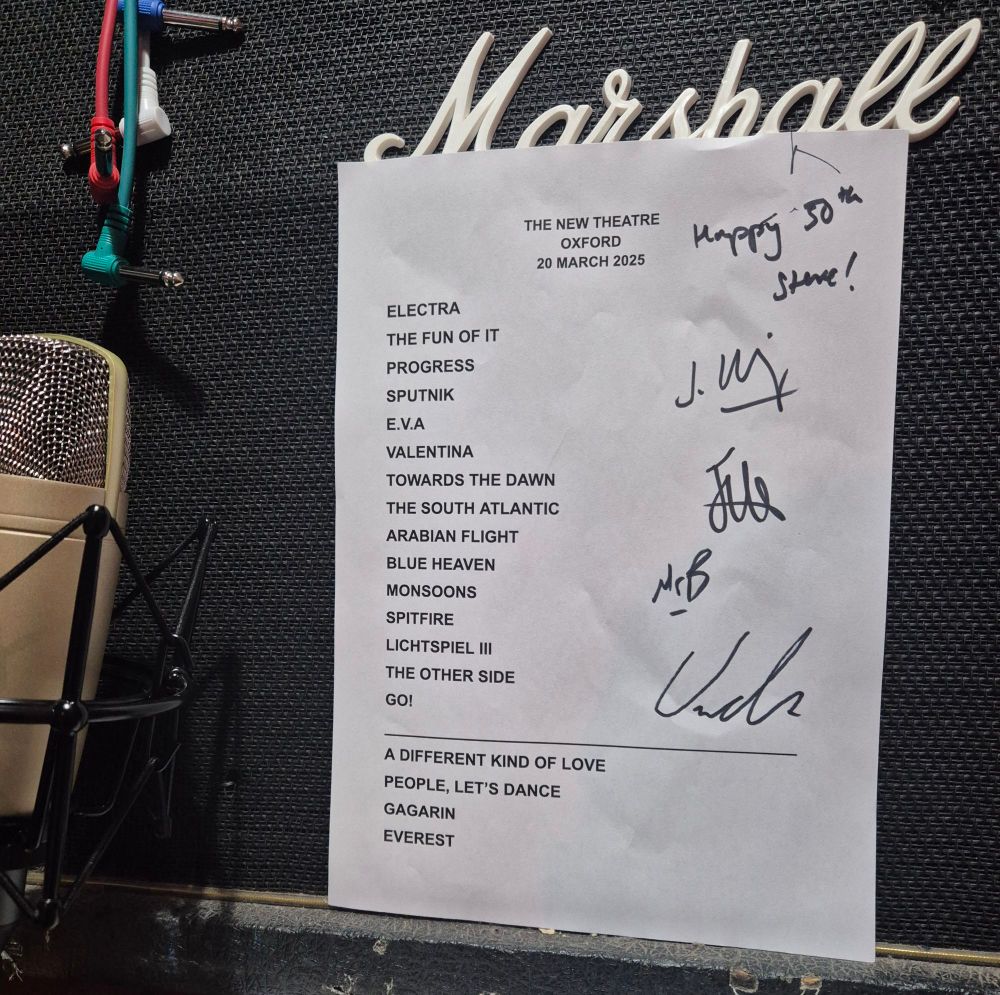 Marshall
THE NEW THEATRE
OXFORD
20 MARCH 2025
Happy 50th
Steve!
J. W
ELECTRA
THE FUN OF IT
PROGRESS
SPUTNIK
E.V.A
VALENTINA
TOWARDS THE DAWN
THE SOUTH ATLANTIC
ARABIAN FLIGHT
BLUE HEAVEN
MONSOONS
SPITFIRE
LICHTSPIEL III
THE OTHER SIDE
GO!
MrB
A DIFFERENT KIND OF LOVE
PEOPLE, LET'S DANCE
GAGARIN
EVEREST